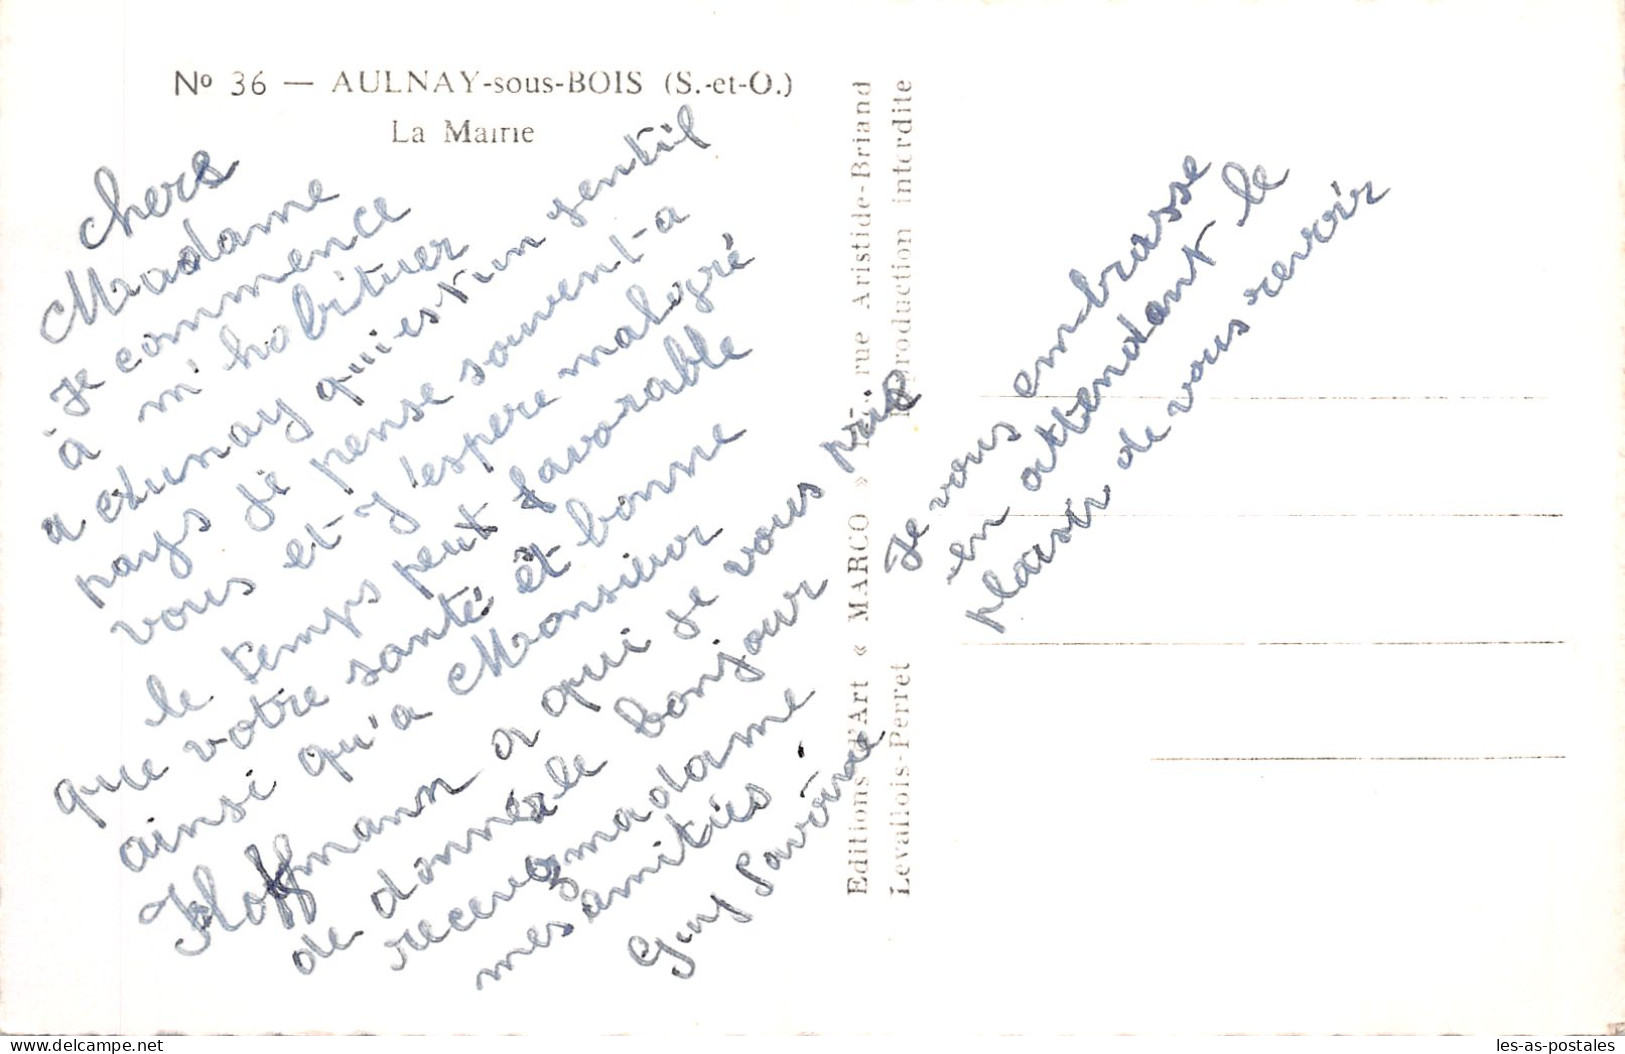 N° 36 — AULNAY-sous-BOIS (S.-et-O.)
La Mairie
chers
Madame
je commence
à m'habituer
a Aunay qui est un gentil
pays je pense souvent a
vous et j'espere malgré
le temps peut favorable
que votre santé et bonne
ainsi qu'a Monsieur
Hoffmann a qui je vous prie
de donner le bonjour
recevez madame
mes amitiés.
Guy Savoine
Je vous embrasse
en attendant le
plaisir de vous revoir
Editions d'Art « MARCO » rue Aristide-Briand
Levallois-Perret Reproduction interdite
les-as-postales